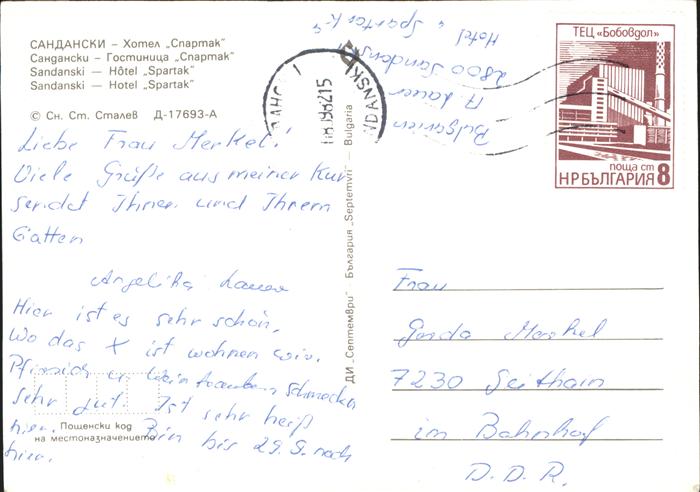 САНДАНСКИ – Хотел „Спартак"
Сандански – Гостиница „Спартак"
Sandanski — Hôtel „Spartak"
Sandanski — Hotel „Spartak"
© Сн. Ст. Сталев Д-17693-А
Liebe Frau Merkel!
Viele Grüße aus meiner Kur
sendet Ihnen und Ihrem
Gatten
Angelika Lauer
Hier ist es sehr schön,
Wo das X ist wohnen wir.
Pfirsich u. Weintrauben schmecken
sehr gut. Ist sehr heiß
hier. Bin bis 29.9. noch
hier.
Пощенски код
на местоназначението
ДИ „Септември" България „Septemvri" — Bulgaria
Hotel „Spartak"
2800 Sandanski
A. Lauer
Bulgarien
ТЕЦ «Бобовдол»
поща ст
НР БЪЛГАРИЯ 8
Frau
Gerda Merkel
7230 Geithain
im Bahnhof
D.D.R.